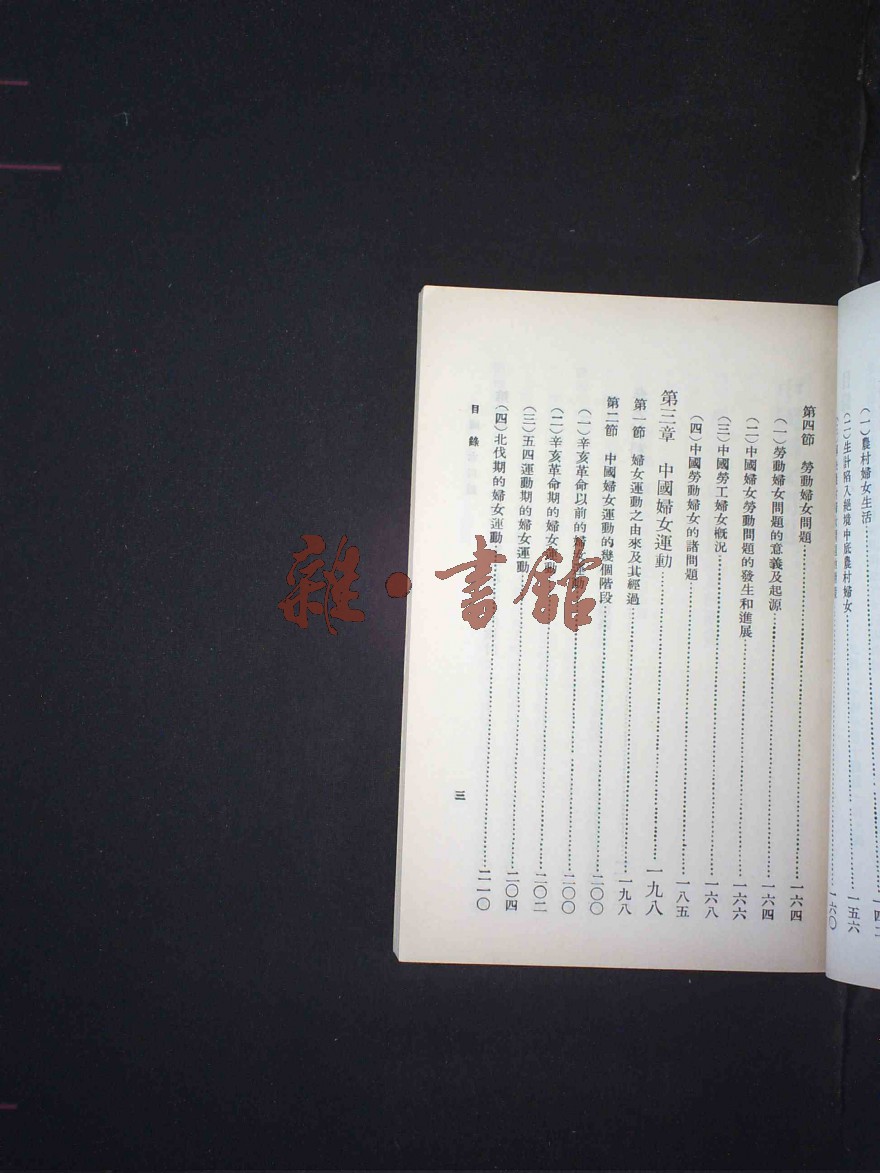 (一)農村婦女生活……一四二
(二)生計陷入絕境中底農村婦女……一五六
……一六〇
第四節 勞動婦女問題……一六四
(一)勞動婦女問題的意義及起源……一六四
(二)中國婦女勞動問題的發生和進展……一六六
(三)中國勞工婦女槪況……一六八
(四)中國勞動婦女的諸問題……一八五
第三章 中國婦女運動……一九八
第一節 婦女運動之由來及其經過……一九八
第二節 中國婦女運動的幾個階段……二〇〇
(一)辛亥革命以前的婦女運動……二〇〇
(二)辛亥革命期的婦女運動……二〇二
(三)五四運動期的婦女運動……二〇四
(四)北伐期的婦女運動……二一〇
目錄
三
雜·書館